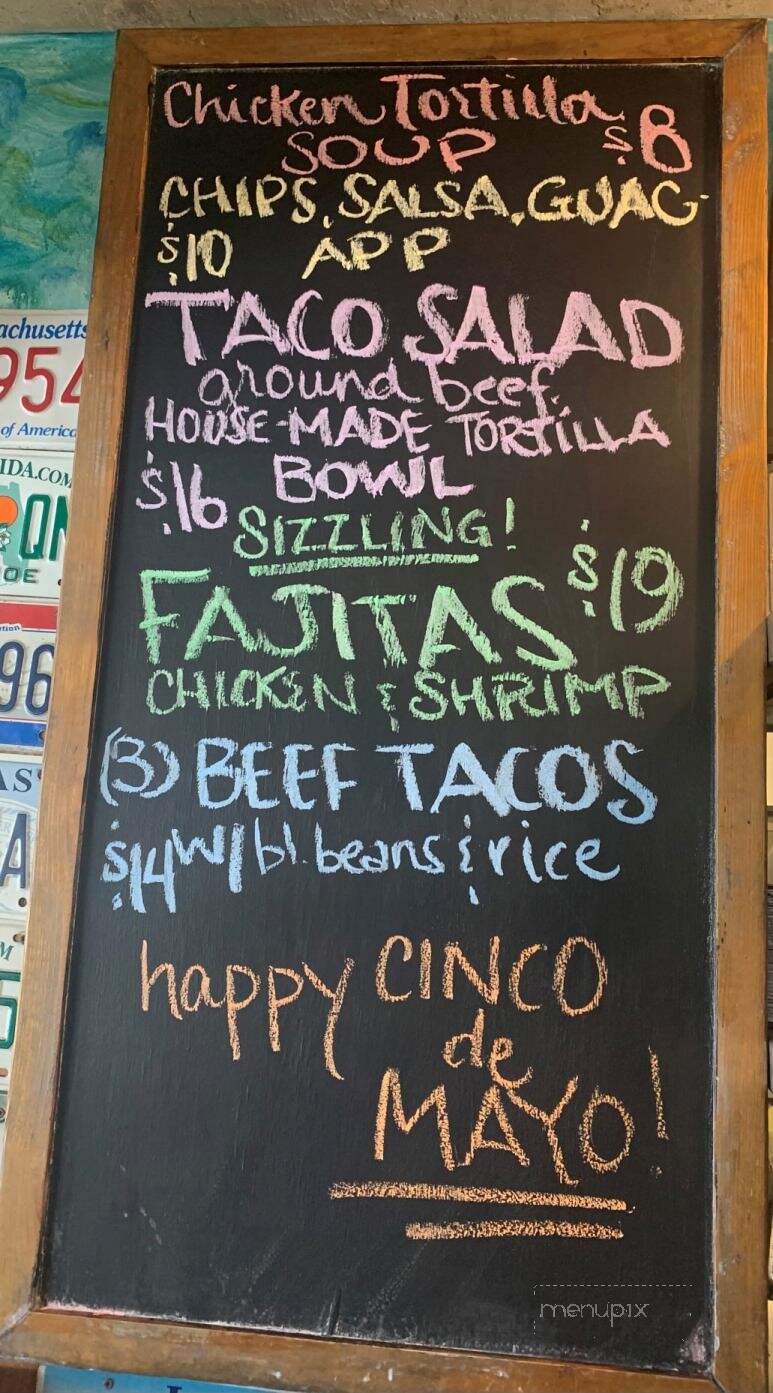 Chicken Tortilla
SOUP $8
CHIPS, SALSA, GUAC
$10 APP
TACO SALAD
ground beef.
HOUSE-MADE TORTILLA
$16 BOWL
SIZZLING!
FAJITAS $19
CHICKEN & SHRIMP
(3) BEEF TACOS
$14 W/ bl. beans & rice
happy CINCO
de
MAYO!
menupix
achusetts
954
of America
IDA.COM
QN
OE
96
A
M